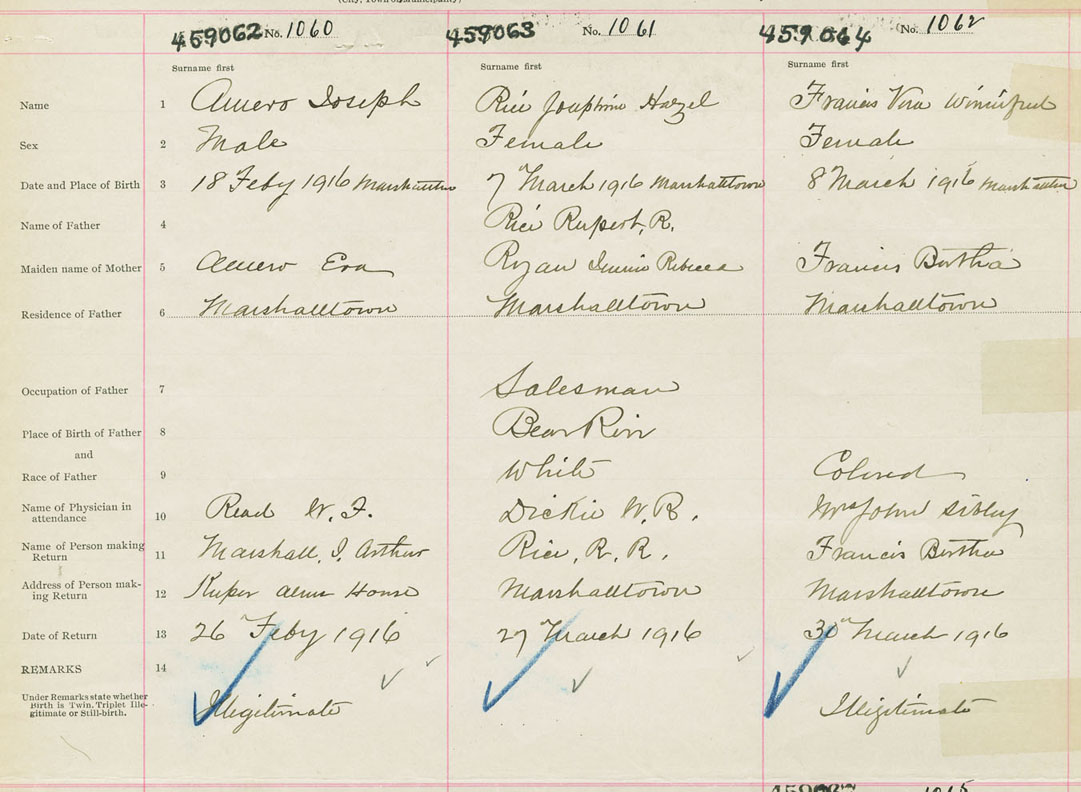 (City, Town or Municipality)
459062 No. 1060 459063 No. 1061 459064 No. 1062
Surname first Surname first Surname first
Name 1 Amero Joseph Rice Josephine Hazel Francis Vera Winnifred
Sex 2 Male Female Female
Date and Place of Birth 3 18 Feby 1916 Marshalltown 7th March 1916 Marshalltown 8 March 1916 Marshalltown
Name of Father 4 Rice Rupert, R.
Maiden name of Mother 5 Amero Eva Ryan Rebecca Francis Bertha
Residence of Father 6 Marshalltown Marshalltown Marshalltown
Occupation of Father 7 Salesman
Place of Birth of Father 8 Bear River
and
Race of Father 9 White Colored
Name of Physician in
attendance 10 Read W. F. Dickie W. R. Mrs John Sibley
Name of Person making
Return 11 Marshall, J. Arthur Rice, R. R. Francis Bertha
Address of Person mak-
ing Return 12 Keeper Alms House Marshalltown Marshalltown
Date of Return 13 26 Feby 1916 27 March 1916 30th March 1916
REMARKS 14
Under Remarks state whether
Birth is Twin, Triplet Ille-
gitimate or Still-birth. Illegitimate Illegitimate
1065